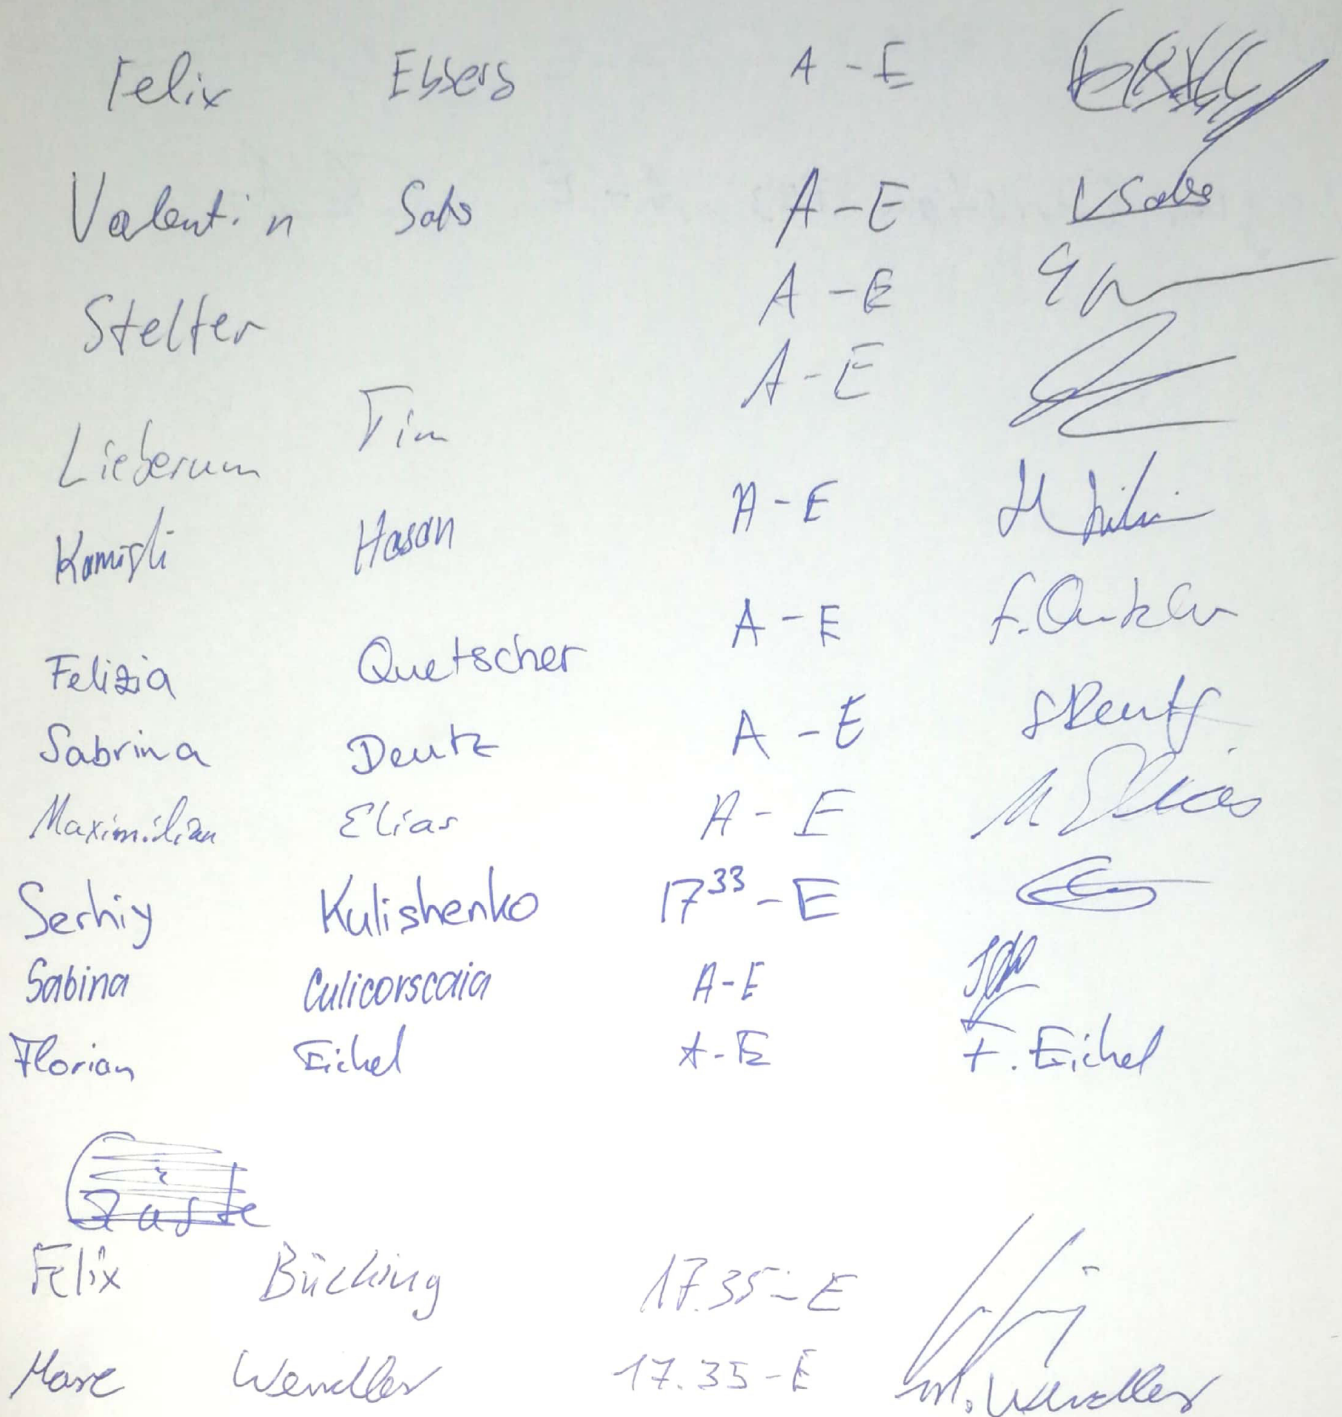 Felix Ebbers A - E
Valentin Sabs A - E VSabs
Stelter A - E
Lieberum Tim A - E
Kamisli Hasan A - E
Felizia Quetscher A - E
Sabrina Deutz A - E SDeutz
Maximilian Elias A - E M Elias
Serhiy Kulishenko 17³³ - E
Sabina Culicorscaia A - E
Florian Eichel A - E F. Eichel
Gäste
Felix Büching 17.35 - E
Marc Wendler 17.35 - E M. Wendler